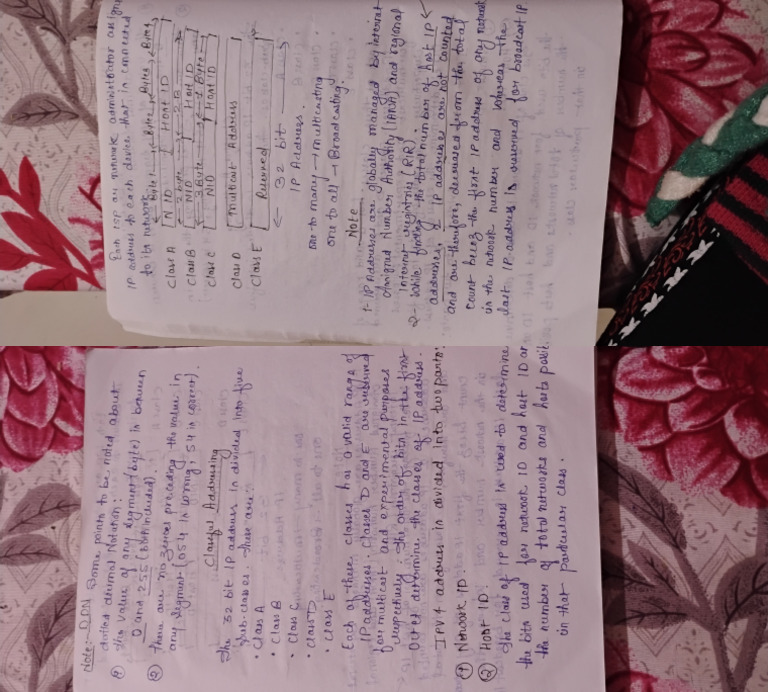 Note:- DDN Some points to be noted about
dotted decimal Notation:
① The value of any segment (byte) is between
0 and 255 (both included).
② There are no zeroes preceding the value in
any segment (054 is wrong, 54 is correct).
Classful Addressing
The 32 bit IP address is divided into five
sub-classes. These are:
• Class A
• Class B
• Class C
• Class D
• Class E
Each of these classes has a valid range of
IP addresses. Classes D and E are reserved
for multicast and experimental purposes
respectively. The order of bits in the first
Octet determine the classes of IP address.
IPV4 address is divided into two parts:
① Network ID
② Host ID
The class of IP address is used to determine
the bits used for network ID and host ID and
the number of total networks and hosts possible
in that particular class.
Each ISP or network administrator assigns
IP address to each device that is connected
to its network.
Byte Byte Byte Byte
Class A NID Host ID
2 byte 2B
Class B NID Host ID
3 Byte Byte
Class C NID Host ID
Class D Multicast Address
Class E Reserved
← 32 bit →
IP Address.
one to many → multicasting
one to all → Broadcasting.
Note
1- IP Addresses are globally managed by internet
Assigned Number Authority (IANA) and regional
Internet registries (RIR).
2- While finding the total number of host IP
addresses, 2 IP addresses are not counted
and are therefore, decreased from the total
count being the first IP address of any network
is the network number and whereas the
last IP address is reserved for broadcast IP